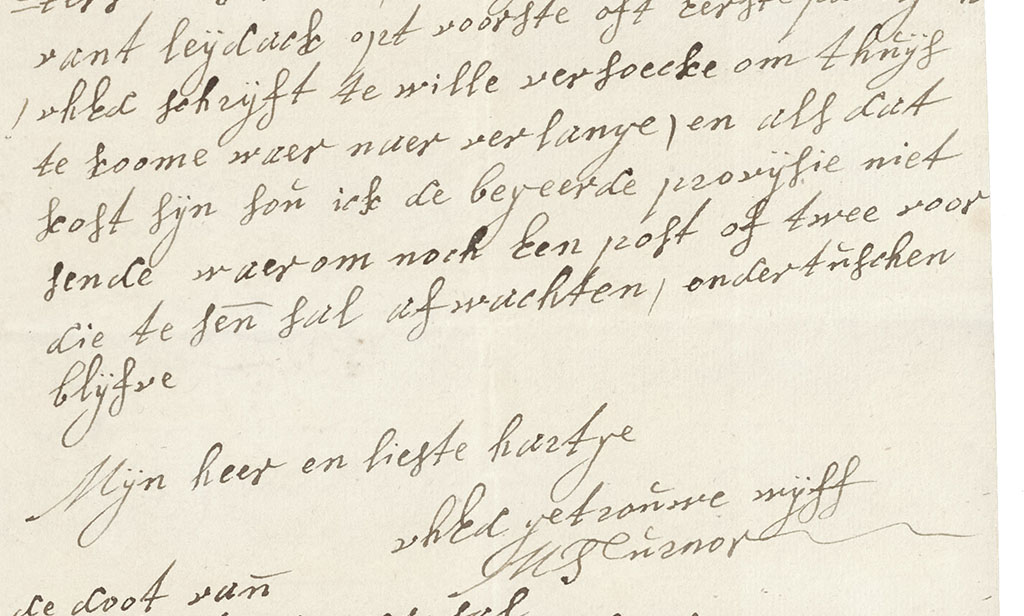 vant leÿdack opt voorste oft eerste
vhEd schrijft te wille versoecke om thuÿs
te koome waer naer verlange, en als dat
kost sijn soú ick de begeerde provijsie niet
sende waerom noch Een post of twee voor
die te sen̄ sal afwachten, ondertúschen
blÿfve
Mijn heer en liefste hartge
vhEd getroúwe wijff
M Túrnor
de doot van̄